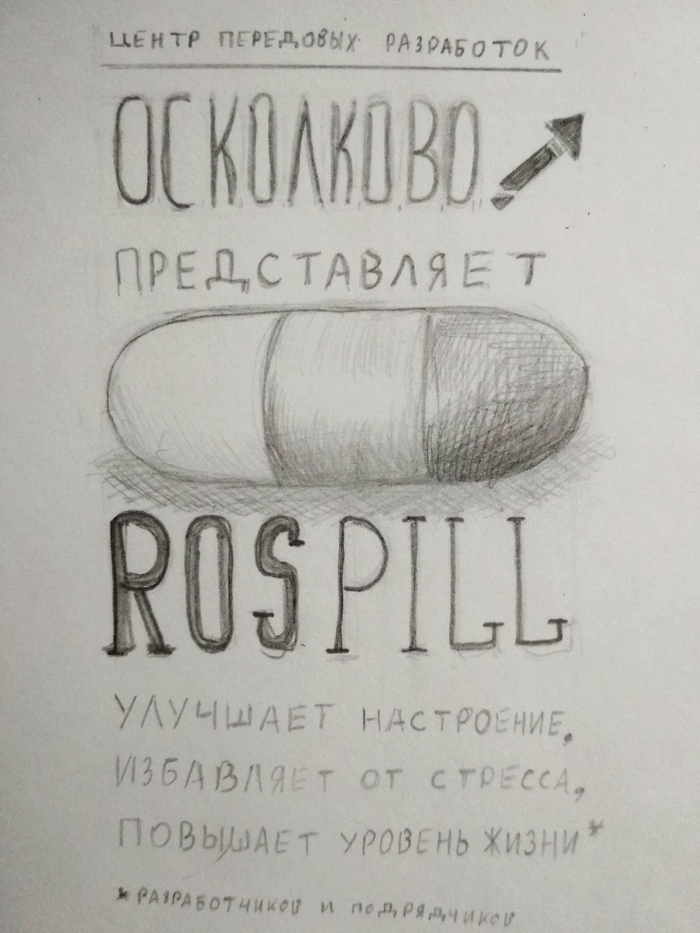 ЦЕНТР ПЕРЕДОВЫХ РАЗРАБОТОК
ОСКОЛКОВО
ПРЕДСТАВЛЯЕТ
ROSPILL
УЛУЧШАЕТ НАСТРОЕНИЕ,
ИЗБАВЛЯЕТ ОТ СТРЕССА,
ПОВЫШАЕТ УРОВЕНЬ ЖИЗНИ*
*РАЗРАБОТЧИКОВ И ПОДРЯДЧИКОВ